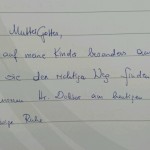 Mutter Gottes,
auf meine Kinder besonders au
sie den richtigen Weg finden
Hr. Doktor am heutigen
Ruhe